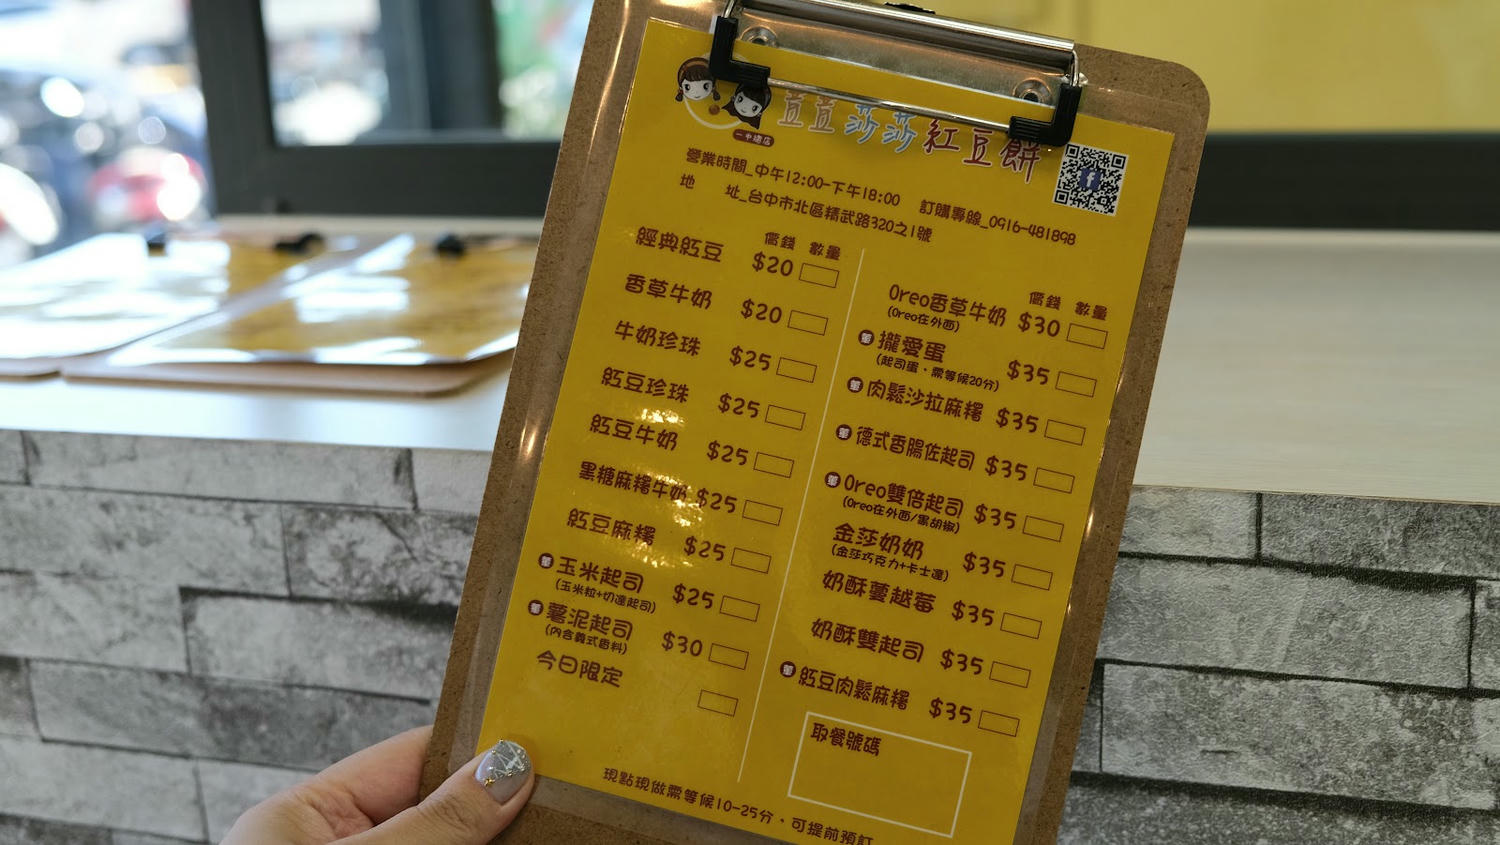 荳荳莎莎紅豆餅
一中總店
營業時間_中午12:00-下午18:00 訂購專線_0916-481898
地 址_台中市北區精武路320之1號
價錢 數量
經典紅豆 $20
香草牛奶 $20
牛奶珍珠 $25
紅豆珍珠 $25
紅豆牛奶 $25
黑糖麻糬牛奶 $25
紅豆麻糬 $25
玉米起司 $25
(玉米粒+切達起司)
薯泥起司 $30
(內含義式香料)
今日限定
價錢 數量
Oreo香草牛奶 $30
(Oreo在外面)
攏愛蛋 $35
(起司蛋,需等候20分)
肉鬆沙拉麻糬 $35
德式香腸佐起司 $35
Oreo雙倍起司 $35
(Oreo在外面/黑胡椒)
金莎奶奶 $35
(金莎巧克力+卡士達)
奶酥蔓越莓 $35
奶酥雙起司 $35
紅豆肉鬆麻糬 $35
取餐號碼
現點現做需等候10-25分,可提前預訂